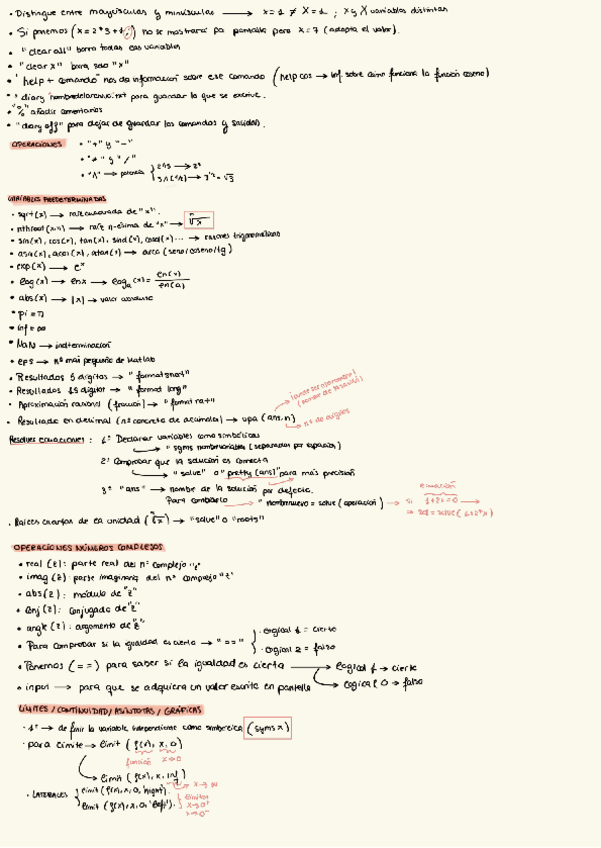 • Distingue entre mayúsculas y minúsculas → x=1 ≠ X=1 ; x y X variables distintas
• Si ponemos (x = 2*3+1;) no se mostrará pa pantalla pero x=7 (adopta el valor).
• "clear all" borra todas las variables
• "clear x" borra solo "x"
• "help + comando" nos da información sobre ese comando (help cos → inf. sobre cómo funciona la función coseno)
• diary nombredelarchivo.txt para guardar lo que se escribe.
• "%" añadir comentarios
• "diary off" para dejar de guardar los comandos y salidas.
OPERACIONES • "+" y "-"
• "*" y "/"
• "^" → potencia
VARIABLES PREDETERMINADAS
• sqrt(x) → raíz cuadrada de "x".
• nthroot(x,n) → raíz n-ésima de "x" → ⁿ√x
• sin(x), cos(x), tan(x), sind(x), cosd(x)... → razones trigonométricas
• asin(x), acos(x), atan(x) → arco (seno/coseno/tg)
• exp(x) → eˣ
• log(x) → lnx → logₐ(x) = ln(x)/ln(a)
• abs(x) → |x| → valor absoluto
• pi = π
• inf = ∞
• NaN → indeterminación
• eps → nº más pequeño de Matlab
• Resultados 5 dígitos → "format short"
• Resultados 15 dígitos → "format long"
• Aproximación racional (fracción) → "format rat"
• Resultado en decimal (nº concreto de decimales) → vpa (ans, n)
nº de dígitos
Resolver ecuaciones : 1º Declarar variables como simbólicas
→ "syms nombrevariables (separadas por espacios)
2º Comprobar que la solución es correcta
→ "solve" o "pretty (ans)" para más precisión
3º "ans" → nombre de la solución por defecto.
Para cambiarlo → "nombrenuevo = solve (operación) → si
ecuación
1+2x=0 →
→ sol = solve (1+2*x)
• Raíces cuartas de la unidad (ⁿ√x) → "solve" o "roots"
OPERACIONES NÚMEROS COMPLEJOS
• real (z): parte real del nº complejo "z"
• imag (z): parte imaginaria del nº complejo "z"
• abs (z): módulo de "z"
• conj (z): conjugado de "z"
• angle (z): argumento de "z"
• Para comprobar si la igualdad es cierta → "==" { • Logical 1 = cierto
• Logical 2 = falso
• Ponemos (==) para saber si la igualdad es cierta → Logical 1 → cierto
→ Logical 0 → falso
• input → para que se adquiera un valor escrito en pantalla
LÍMITES / CONTINUIDAD / ASÍNTOTAS / GRÁFICAS
• 1º → definir la variable independiente como simbólica (syms x)
• para límite → limit (f(x), x, 0)
función x→0
→ limit (f(x), x, inf)
→ x→∞
• LATERALES { limit (f(x), x, 0, 'right').
limit (f(x), x, 0, 'left').
límites
x→0⁺
x→0⁻